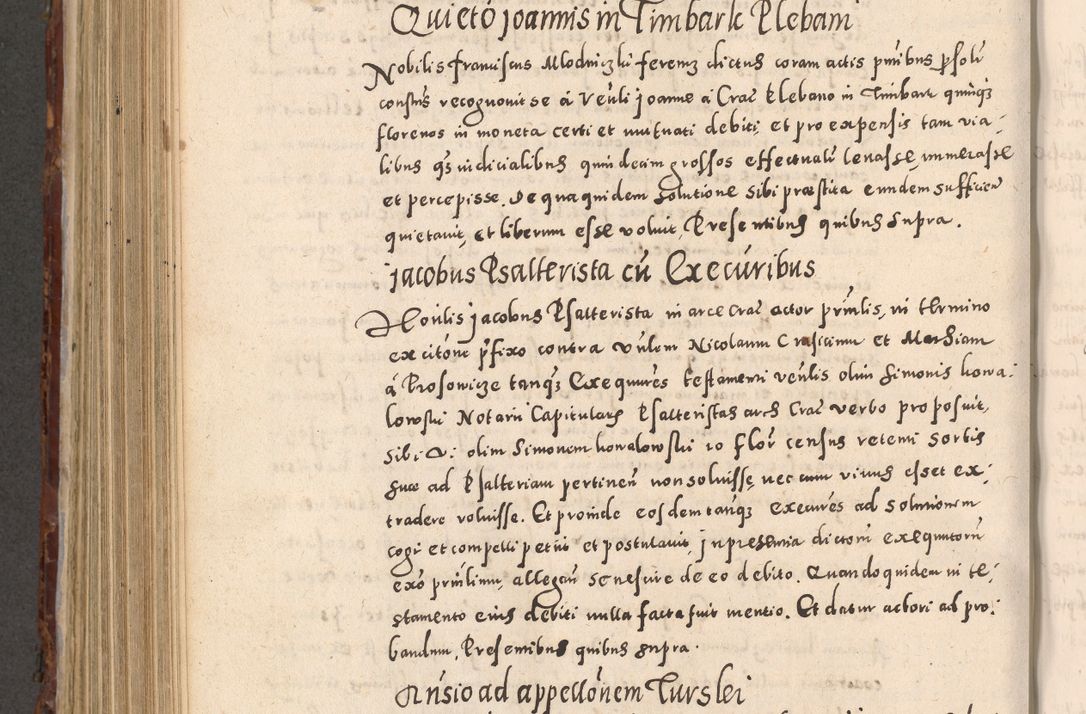 Quietõ Joannis in Timbark Plebani
Nobilis franciscus Mlodniczki ferens dictus coram actis pñtibus psoli
constüs recognovit se á Veñli Joanne á Crac̃ Plebano in Timbark quinqz
florenos in moneta certi et mutuati debiti, et pro expensis tam via-
libus qz iudicialibus quindecim grossos effectuali levasse, numerasse
et percepisse, De qua quidem solutione sibi præstita eundem sufficien
quietavit, et liberum esse voluit, Presentibus quibus supra.
Jacobus Psalterista cũ Execũribus
Honñlis Jacobus Psalterista in arce Crac̃ actor prinlis, in termino
ex citõne p̃fixo contra Veñlem Nicolaum et Mathiam
á Prosowicze tanqz Exequures testamenti veñlis olim Simonis kowa-
lowski Notarii Capitularis Psalteristas arcis Crac̃ verbo proposuit,
sibi olim Simonem kowalowski 10 flor̃ census retemi sortis
suæ ad Psalteriam pertineñ non solvisse, nec cum vivus esset ex-
tradere voluisse. Et proinde eosdem tanqz execures ad solutionem
cogi et compelli petiit et postulavit, in presentia dictorũ exequutorũ
exõ prinlium, allegañ se nescire de eo debito. Quandoquidem in te-
stamento eius debiti nulla facta fuit mentio. Et datur actori ad pro-
bandum, Presentibus quibus supra.
ad appellõnem Turski